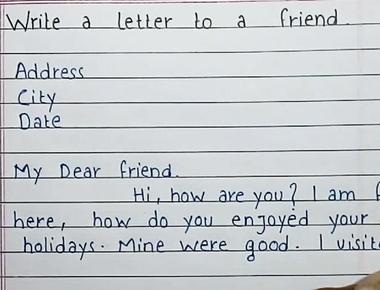 Write a letter to a friend.
Address
City
Date
My Dear friend.
Hi, how are you? I am
here, how do you enjoyed your
holidays. Mine were good. I